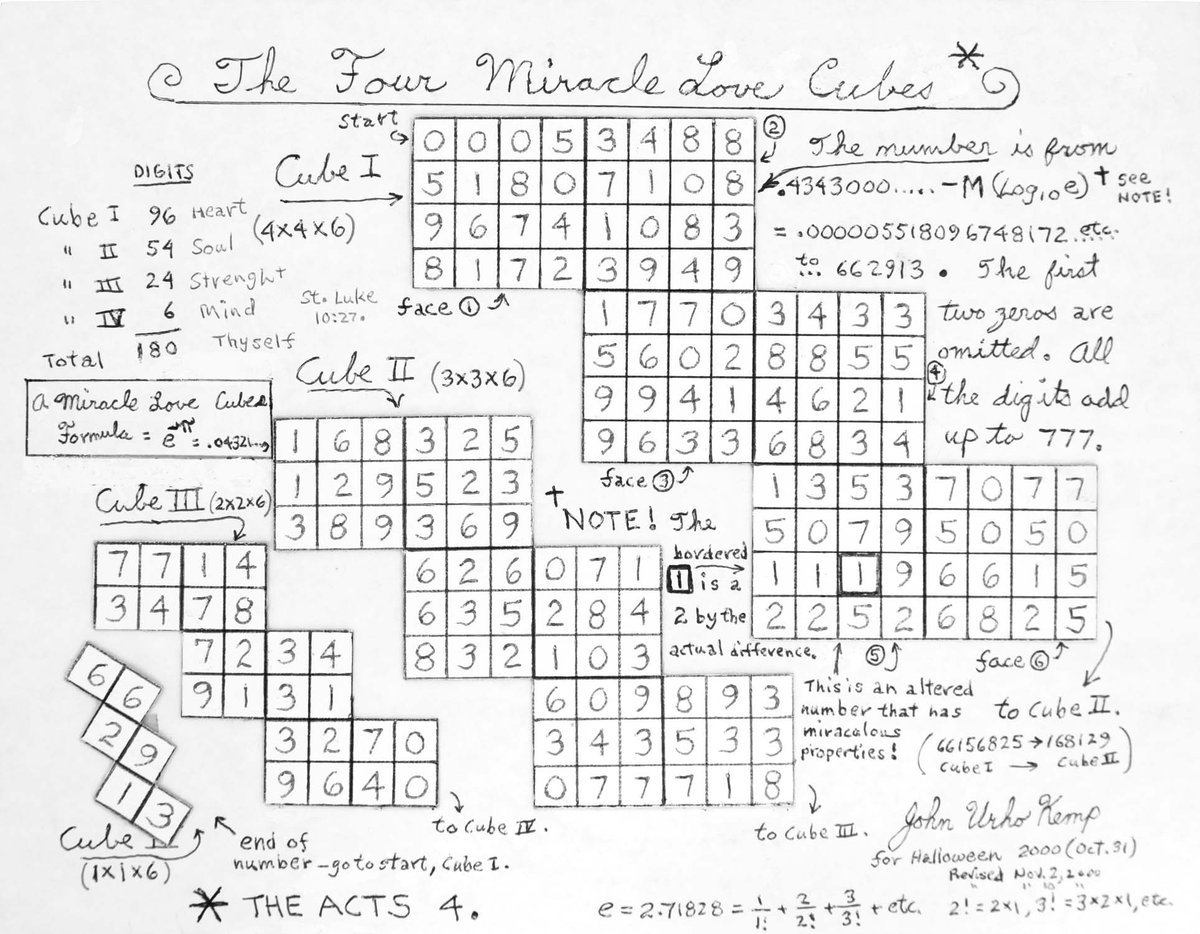 The Four Miracle Love Cubes *
Start
DIGITS
Cube I 96 Heart
" II 54 Soul
" III 24 Strenght
" IV 6 Mind
Total 180 Thyself
St. Luke
10:27.
a Miracle Love Cubes
Formula = e^-π = .04321...
Cube I
(4x4x6)
0 0 0 5 3 4 8 8
5 1 8 0 7 1 0 8
9 6 7 4 1 0 8 3
8 1 7 2 3 9 4 9
face ①
②
The number is from
.4343000..... - M (Log₁₀e) † see
NOTE!
= .000005518096748172..etc.
to... 662913. The first
two zeros are
omitted. All
the digits add
up to 777.
1 7 7 0 3 4 3 3
5 6 0 2 8 8 5 5
9 9 4 1 4 6 2 1
9 6 3 3 6 8 3 4
face ③
④
1 3 5 3 7 0 7 7
5 0 7 9 5 0 5 0
1 1 1 9 6 6 1 5
2 2 5 2 6 8 2 5
⑤
face ⑥
† NOTE! The
bordered
1 is a
2 by the
actual difference.
This is an altered
number that has
miraculous
properties!
to Cube II.
(66156825 → 168129
Cube I → Cube II)
Cube II (3x3x6)
1 6 8 3 2 5
1 2 9 5 2 3
3 8 9 3 6 9
6 2 6 0 7 1
6 3 5 2 8 4
8 3 2 1 0 3
6 0 9 8 9 3
3 4 3 5 3 3
0 7 7 7 1 8
to Cube III.
Cube III (2x2x6)
7 7 1 4
3 4 7 8
7 2 3 4
9 1 3 1
3 2 7 0
9 6 4 0
to Cube IV.
6 6
2 9
1 3
Cube IV
(1x1x6)
end of
number - go to start, Cube I.
* THE ACTS 4.
John Urho Kemp
for Halloween 2000 (Oct. 31)
Revised Nov. 2, 2000
" 10 "
e = 2.71828 = 1/1! + 2/2! + 3/3! + etc. 2! = 2x1, 3! = 3x2x1, etc.